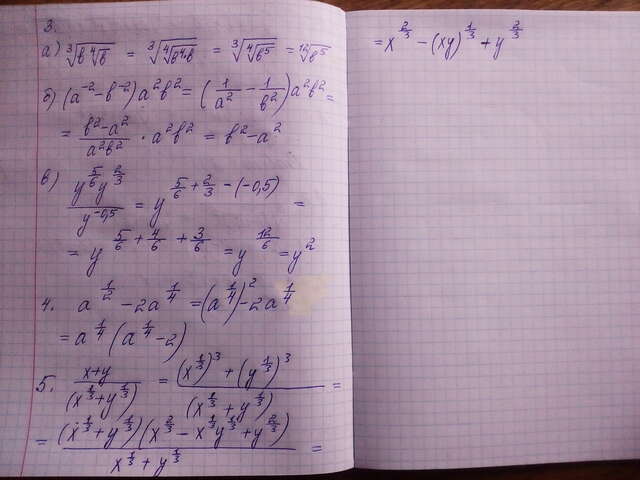 3.
а) ∛(b ∜b) = ∛(∜(b⁴·b)) = ∛(∜(b⁵)) = ¹²√(b⁵)
б) (a⁻² − b⁻²) a²b² = (1/a² − 1/b²) a²b² =
= (b² − a²)/(a²b²) · a²b² = b² − a²
в) (y^(5/6) y^(2/3))/(y^(−0,5)) = y^(5/6 + 2/3 − (−0,5)) =
= y^(5/6 + 4/6 + 3/6) = y^(12/6) = y²
4. a^(1/2) − 2a^(1/4) = (a^(1/4))² − 2a^(1/4)
= a^(1/4) (a^(1/4) − 2)
5. (x+y)/(x^(1/3) + y^(1/3)) = ((x^(1/3))³ + (y^(1/3))³)/(x^(1/3) + y^(1/3)) =
= ((x^(1/3) + y^(1/3))(x^(2/3) − x^(1/3)y^(1/3) + y^(2/3)))/(x^(1/3) + y^(1/3)) =
= x^(2/3) − (xy)^(1/3) + y^(2/3)